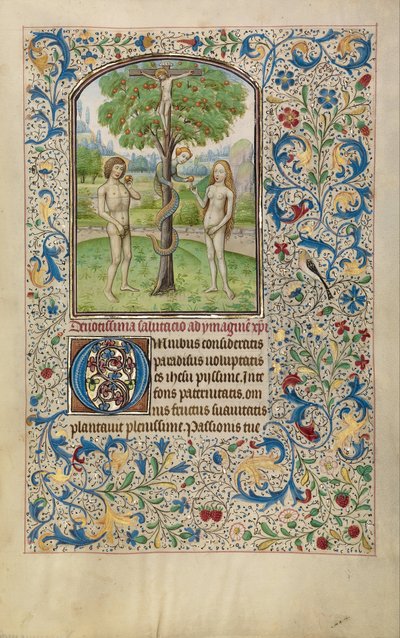 Deuotissima salutatio ad ymaginē xp̄i
Omnibus consideratis
paradisus uoluptatis
es ihesu pyssime. Inte
fons paternitatis. om
nis fructus suauitatis
plantauit plenissime. Passionis tue